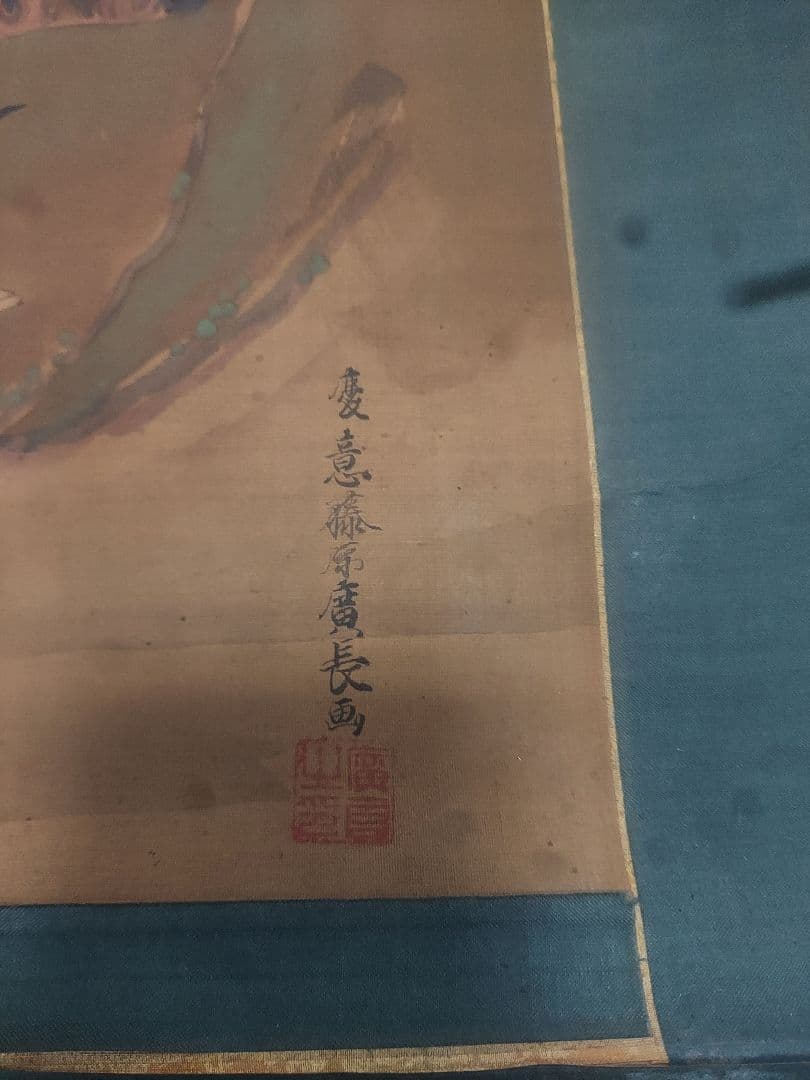 意藤原廣長画